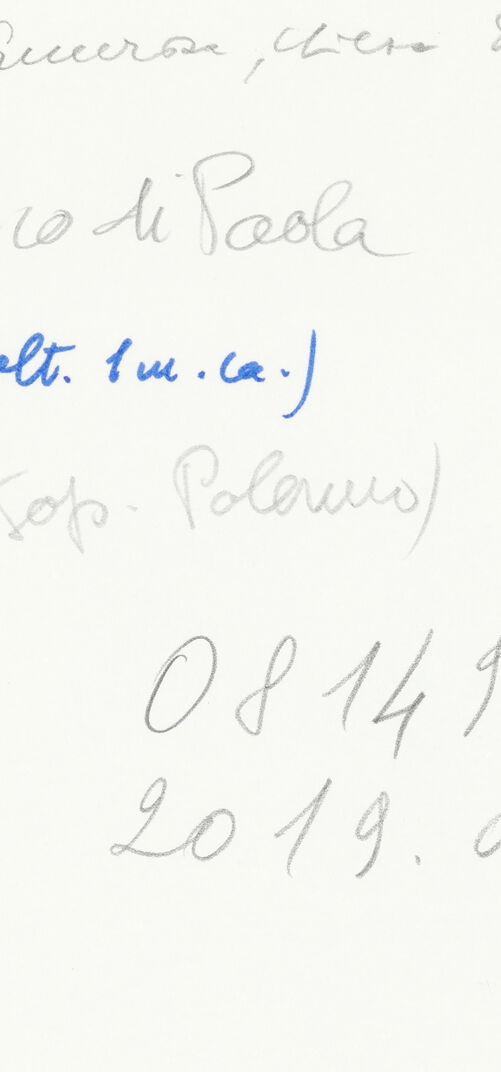 , chiesa
co di Paola
alt. 1 m. ca.)
Sop. Palermo)
08149
2019.